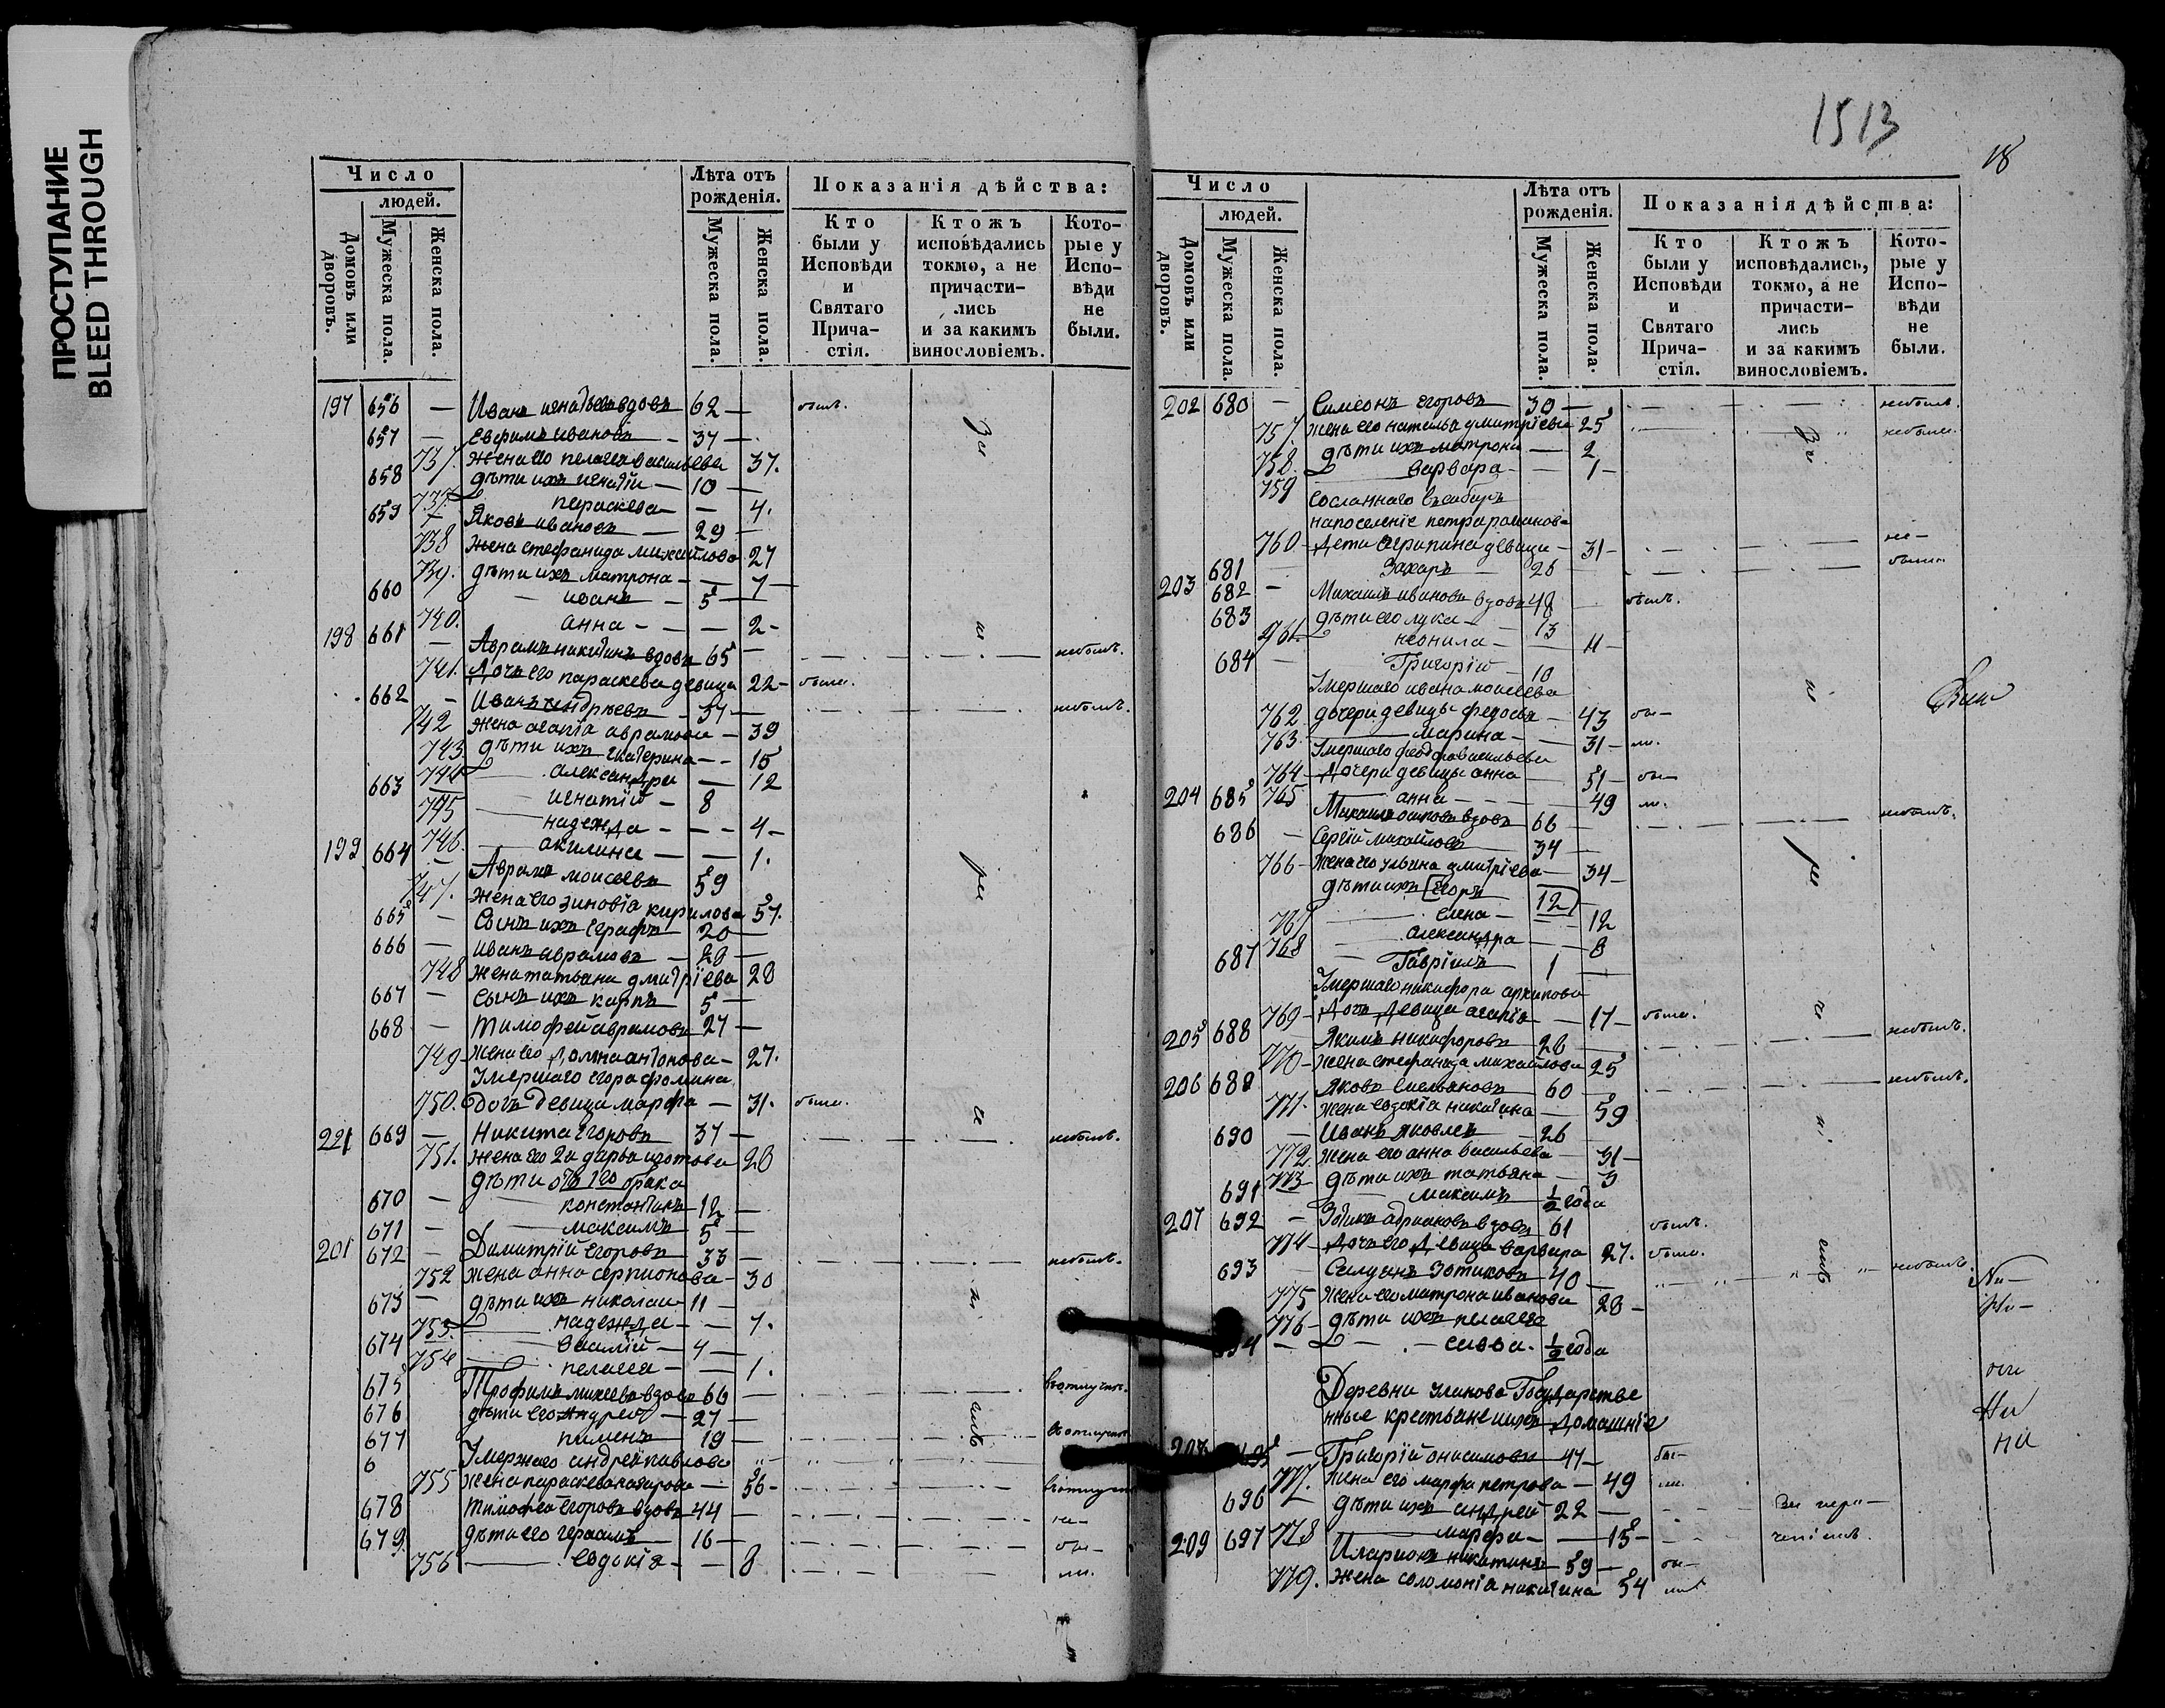 ПРОСТУПАНИЕ
BLEED THROUGH
Число
людей.
Домовъ или дворовъ.
Мужеска пола.
Женска пола.
Лѣта отъ рожденія.
Мужеска пола.
Женска пола.
Показанія дѣйства:
Кто были у Исповѣди и Святаго Прича-стія.
Ктожъ исповѣдались токмо, а не причасти-лись и за какимъ винословіемъ.
Кото-рые у Испо-вѣди не были.
197 656 — Иванъ вдовъ 62 — былъ.
657 — Евфимъ Ивановъ — 37 —
737. Жена его пелагея васильева 37.
658 дѣти ихъ игнатій — 10 —
параскева — — 4.
659 — Яковъ ивановъ — 29 —
738 жена стефанида михайлова 27
739. дѣти ихъ матрона — — 7 —
660 — иванъ — 5 —
740. анна — — — 2 —
198 661 — Аврамъ никитинъ вдовъ 65 — небылъ.
741. Дочь его параскева девица 22 — была.
662 — Иванъ андрѣевъ — 37 — небылъ.
742 жена агапіа аврамова — 39
743 дѣти ихъ екатерина — — 15
744 — александра — 12
663 — игнатій — 8
745 — надежда — — — 4 —
746. — акилина — — 1.
199 664 — Аврамъ моисеевъ 59
747. жена его зиновіа кирилова 57.
665 — Сынъ ихъ 20 —
666 — иванъ аврамовъ — 28 —
748 жена татьяна дмитріева 28
667 — сынъ ихъ карпъ 5 —
668 — тимофей аврамовъ 27 —
749 — жена его домна антонова — 27.
Умершаго егора фомина
750. дочь девица марфа — 31. была.
221 669 — Никита егоровъ 37 — небылъ.
751. жена его 2я дарья изотова 28
дѣти отъ 1го брака
670 — константинъ — 12 —
671 — максимъ — 5 —
201 672 — Димитрій егоровъ 33 — небылъ.
752 жена анна 30
673 — дѣти ихъ николай — 11 —
753. — надежда — — 7.
674 — василій — 4 —
754 — пелагея — — 1.
675 Трофимъ михеевъ вдовъ 66 —
676 дѣти его андрей — 27 —
677 пименъ 19 —
6 Умершаго андрея павлова
755 жена параскева назарова — 56 —
678 тимофей егоровъ вдовъ 44 — не —
679. дѣти его герасимъ 16 — бы —
756 — евдокія — — 8 ли.
1513
18
Число
людей.
Домовъ или дворовъ.
Мужеска пола.
Женска пола.
Лѣта отъ рожденія.
Мужеска пола.
Женска пола.
Показанія дѣйства:
Кто были у Исповѣди и Святаго Прича-стія.
Ктожъ исповѣдались, токмо, а не причасти-лись и за какимъ винословіемъ.
Кото-рые у Испо-вѣди не были.
202 680 — Симеонъ егоровъ 30 — небылъ.
757. жена его наталья дмитріева 25 небыла.
758. дѣти ихъ матрона — 2
759 — варвара — — 1 —
Сосланнаго въ сибирь
на поселеніе петра романова
760 — дети агрипина девица — 31 — не —
681 — Захаръ — 26 — были
203 682 — Михаилъ ивановъ вдовъ 48 былъ.
683 дѣти его лука — 13
761. неонила — 11 —
684 — Григорій — 10
Умершаго ивана моисеева
762 дочери девицы федосья — 43 бы —
763. — марина — — 31 — ли.
Умершаго феодора васильева
764 — дочери девицы анна — 51 — бы —
204 685 765 анна — — — — 49 ли.
Михаилъ осиповъ вдовъ 66 — небылъ.
686 — Сергій михайловъ 34 —
766 — жена его ульяна дмитріева — 34 —
дѣти ихъ [егоръ 12]
767 — елена — — 12
768 — александра — — 8
687 — Гавріилъ 1 —
Умершаго никифора архипова
769 — дочь девица агапіа — 17 — была.
205 688 Якимъ никифоровъ 28 — небылъ.
770 — жена стефанида михайлова 25
206 689 — Яковъ емельяновъ 60 — небылъ.
771. жена евдокія никитина — 59
690 — Иванъ яковлевъ — 26
772. жена его анна васильева — 31 —
773 — дѣти ихъ татьяна — 3
691 — максимъ 1/2 года
207 692 — Зотикъ адриановъ вдовъ 61 былъ.
774 — дочь его девица варвара 27. была.
693 — Силуанъ Зотиковъ — 40 — небылъ.
775 жена его матрона иванова 28 —
776 — дѣти ихъ пелагея
— савва. 1/2 года
Деревни Государстве
нные крестьяне и ихъ домашніе
— Григорій онисимовъ — 47 — бы —
777. жена его марфа петрова — 49 ли.
696 дѣти ихъ андрей — 22 —
778 — марфа — — 15 —
209 697 Иларионъ никитинъ — 59 — бы —
779. жена соломоніа никитина 54 ли